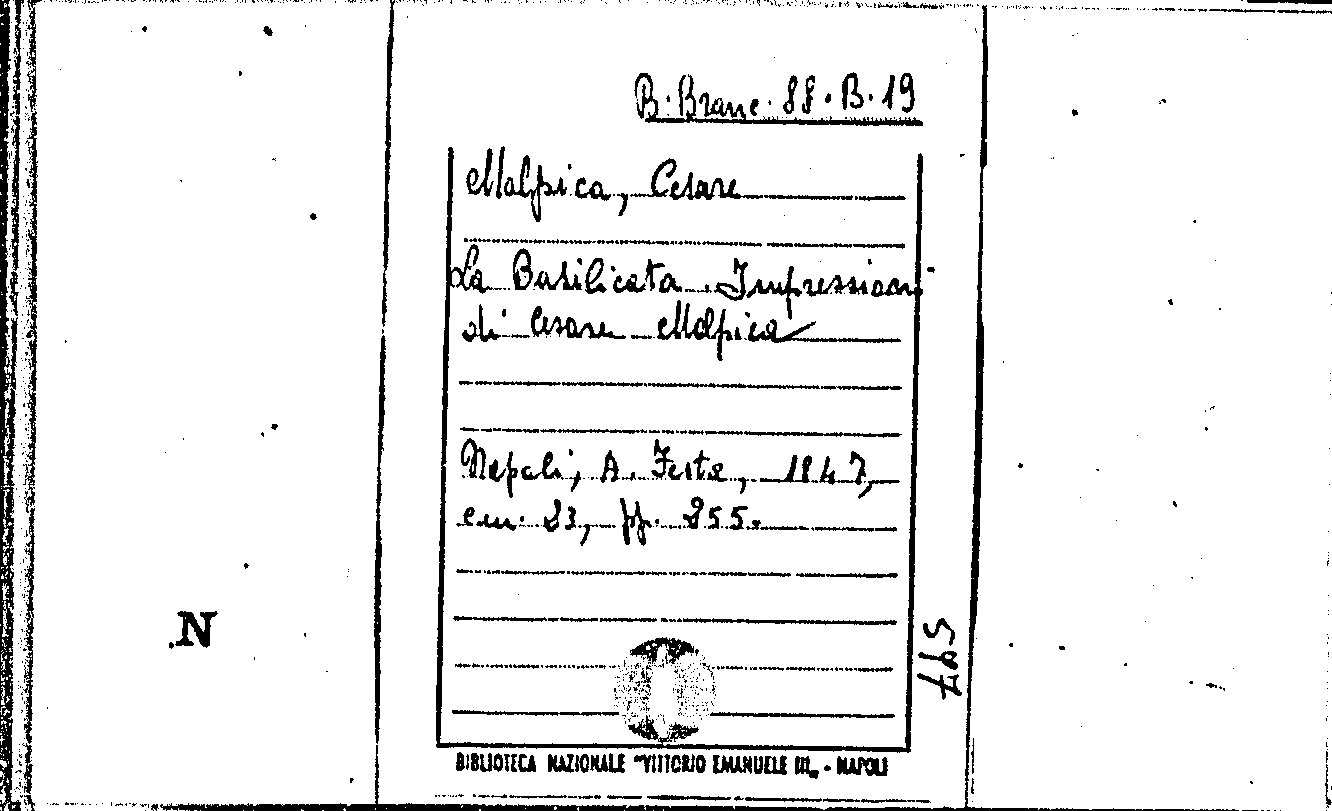 B. Branc. 88. B. 19
Malpica, Cesare
La Basilicata. Impressioni
di Cesare Malpica
Napoli, A. Festa, 1847,
cm. 23, pp. 255.
N
BIBLIOTECA NAZIONALE "VITTORIO EMANUELE III„ - NAPOLI